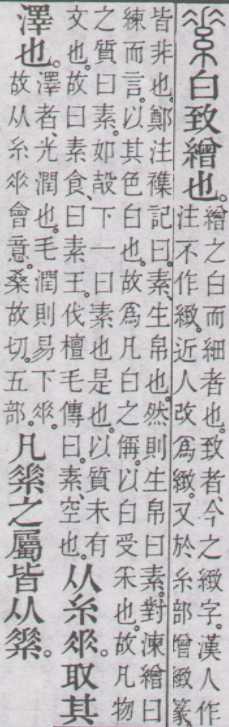 𦃃白致繒也。
繒之白而細者也。致者、今之緻字。漢人作
注不作緻。近人改爲緻。又於糸部增緻篆
皆非也。鄭注襍記曰。素、生帛也。然則生帛曰素。對湅繒曰
練而言。以其色白也。故爲凡白之偁。以白受采也。故凡物
之質曰素。如殻下一曰素也是也。以質未有
文也。故曰素食、曰素王。伐檀毛傳曰。素、空也。
从糸𠂹。取其
澤也。
澤者、光潤也。毛潤則易下𠂹。
故从糸𠂹會意。桑故切。五部。
凡𦃃之屬皆从𦃃。